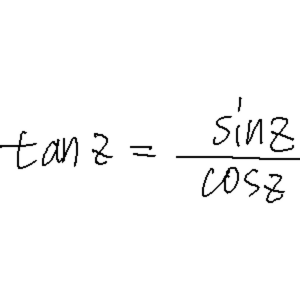 tan z = sin z / cos z